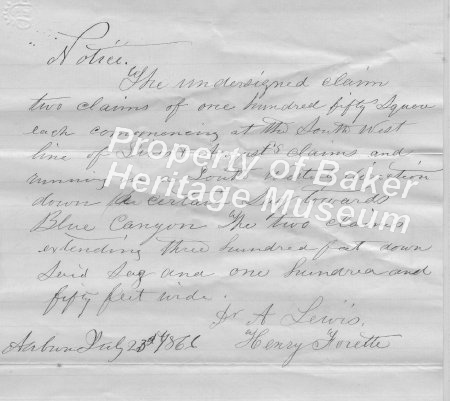 Notice.
The undersigned claim
two claims of one hundred fifty Square
each commencing at the South West
line of claims and
running South direction
down towards
Blue Canyon The two claims
extending three hundred feet down
Said Gag and one hundred and
fifty feet wide.
A Lewis.
Auburn July 23rd 186 Henry
Property of Baker
Heritage Museum